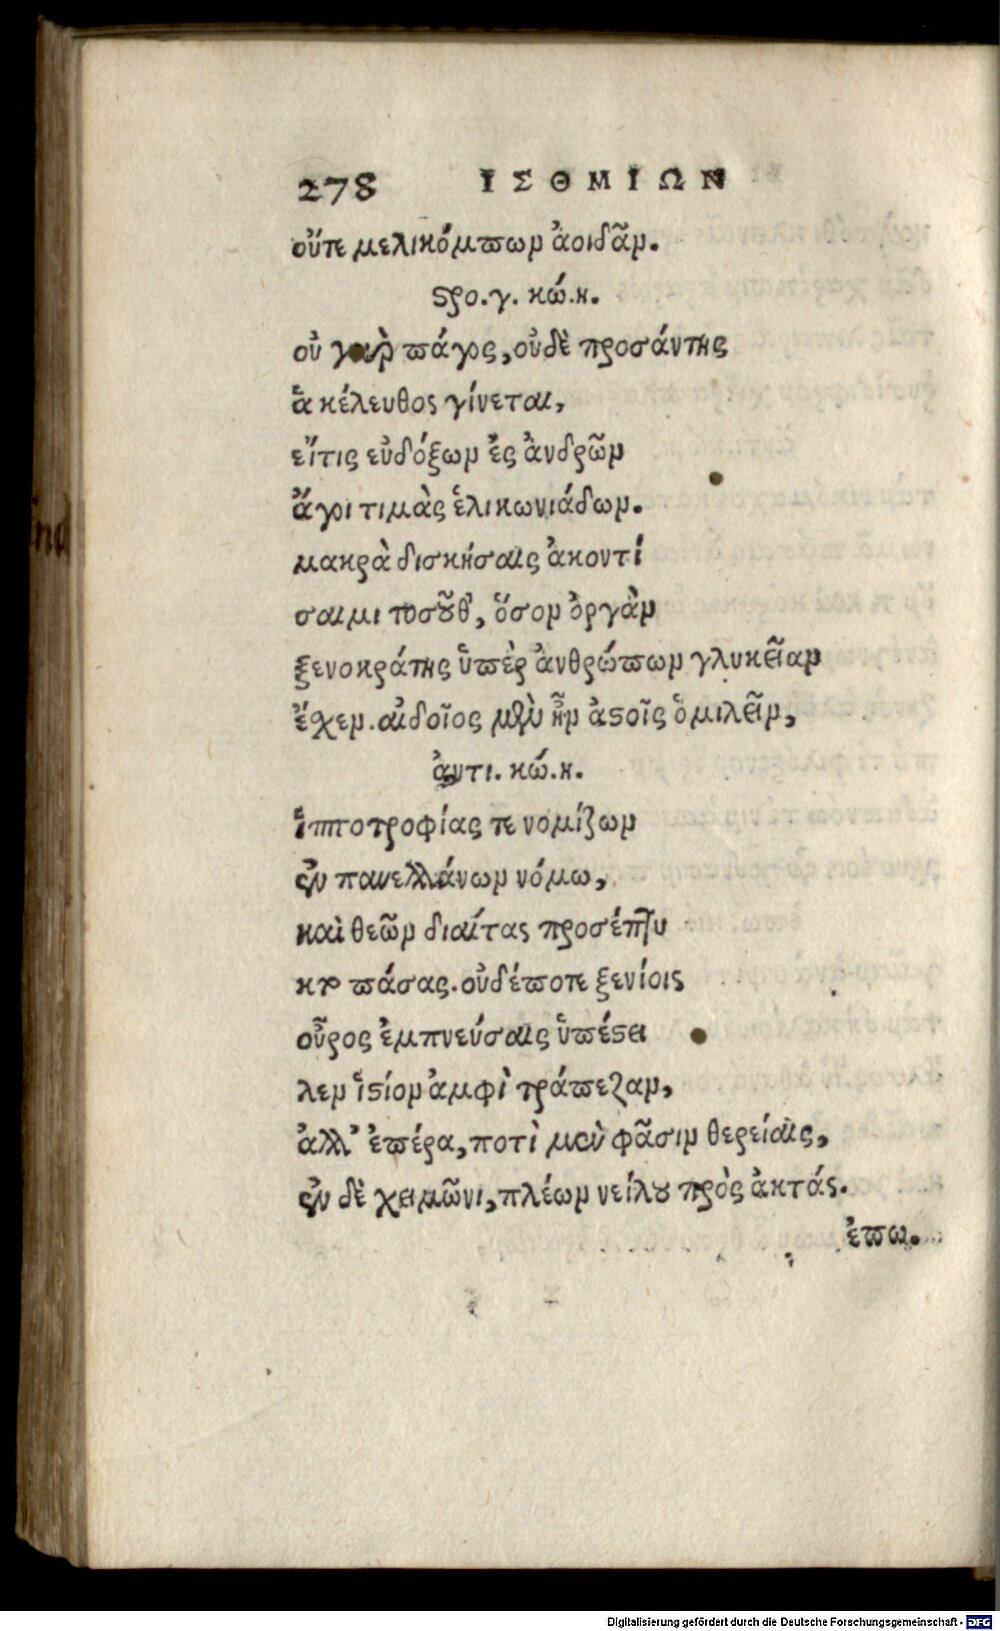 278 ΙΣΘΜΙΩΝ
οὔτε μελικόμπων ἀοιδᾶν.
ϛρο.γ. κώ.κ.
οὐ γὰρ πάγος, οὐδὲ προσάντης
ἁ κέλευθος γίνεται,
εἴτις εὐδόξων ἐς ἀνδρῶν
ἄγοι τιμὰς ἑλικωνιάδων.
μακρὰ δισκήσαις ἀκοντί
σαιμι τοσοῦθ', ὅσον ὀργὰν
ξενοκράτης ὑπὲρ ἀνθρώπων γλυκεῖαν
ἔχεν. αἰδοῖος μὲν ἦν ἀϛοῖς ὁμιλεῖν,
ἀντι. κώ.κ.
ἱπποτροφίας τε νομίζων
ἐν πανελλάνων νόμω,
καὶ θεῶν διαίτας προσέπτυ
κτο πάσας. οὐδέποτε ξενίοις
οὖρος ἐμπνεύσαις ὑπέϛει
λεν ἱϛίον ἀμφὶ τράπεζαν,
ἀλλ' ἐπέρα, ποτὶ μὲν φᾶσιν θερείαις,
ἐν δὲ χειμῶνι, πλέων νείλου πρὸς ἀκτάς.
ἐπω.
Digitalisierung gefördert durch die Deutsche Forschungsgemeinschaft - DFG